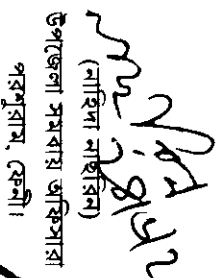 (নাহিদা নাছরিন)
উপজেলা সমবায় অফিসার
পরশুরাম, ফেনী।